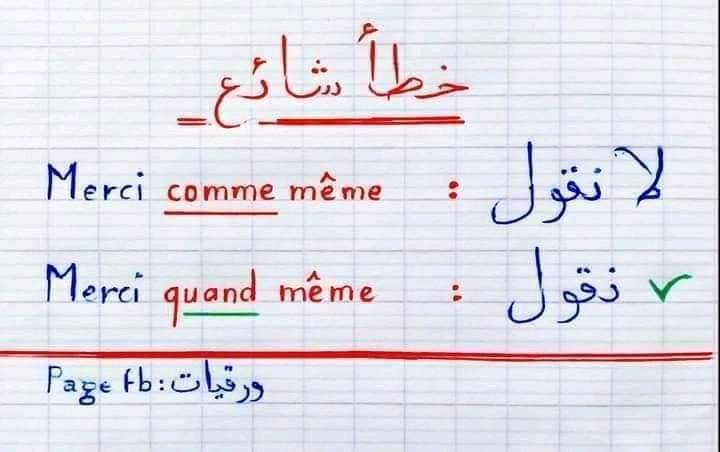 خطأ شائع
لا نقول : Merci comme même
نقول : Merci quand même
Page fb: ورقيات